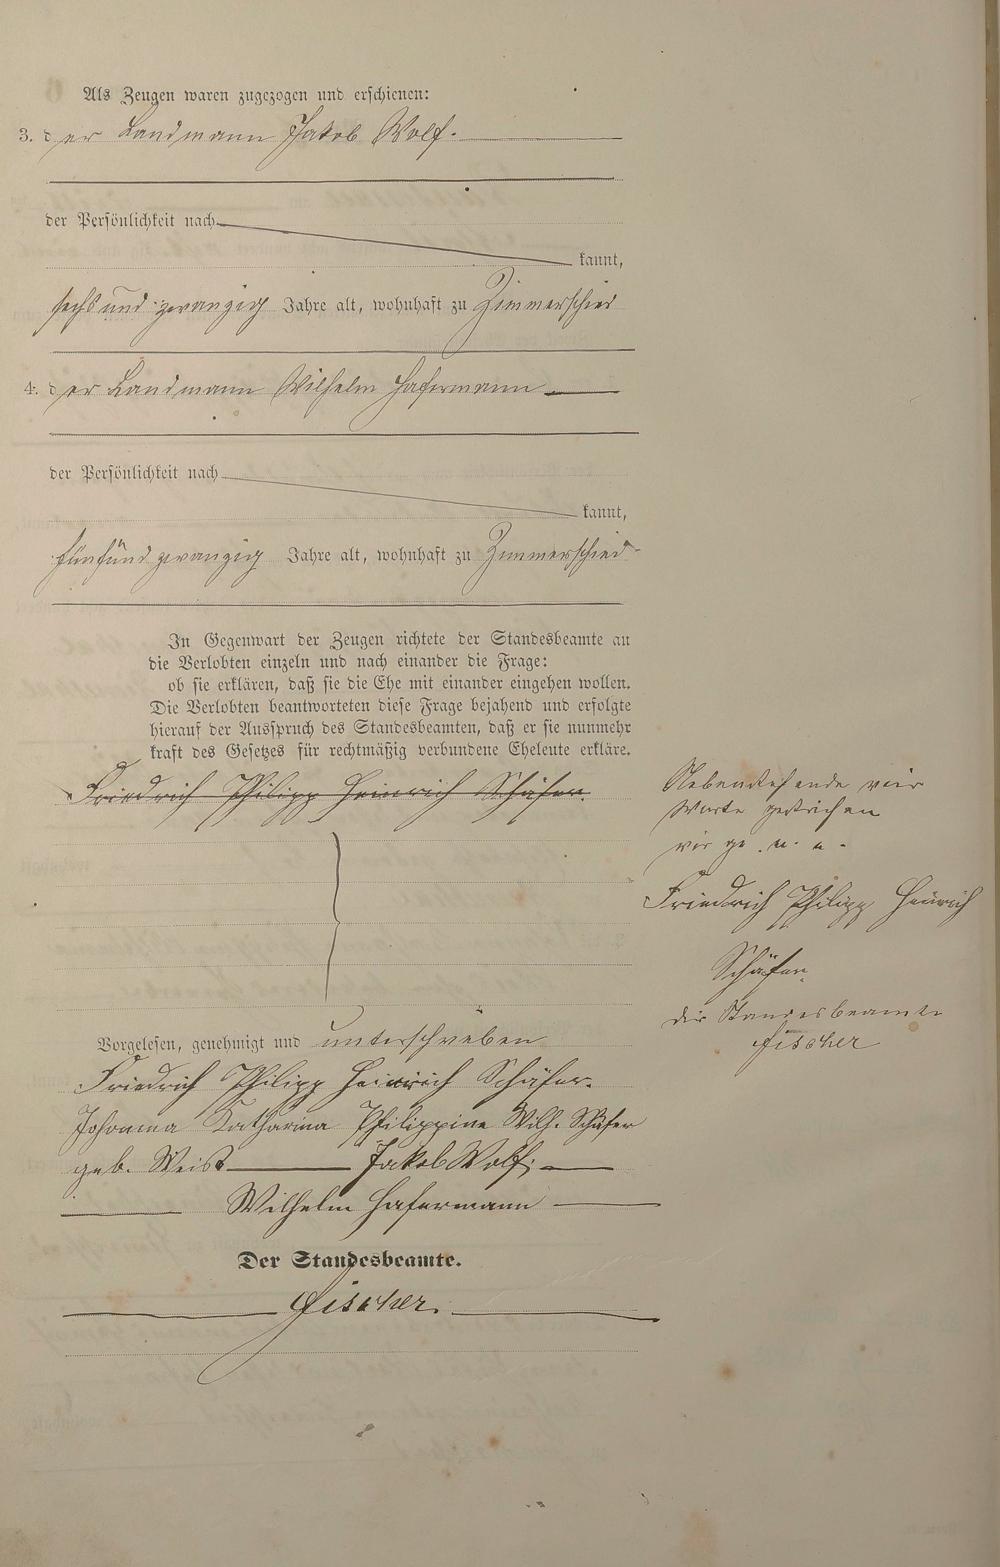 Als Zeugen waren zugezogen und erschienen:
3. der Landmann Jakob Wolf.
der Persönlichkeit nach
kannt,
sechs und zwanzig Jahre alt, wohnhaft zu Zimmerschied
4. der Landmann Wilhelm Hafermann
der Persönlichkeit nach
kannt,
fünfundzwanzig Jahre alt, wohnhaft zu Zimmerschied
In Gegenwart der Zeugen richtete der Standesbeamte an
die Verlobten einzeln und nach einander die Frage:
ob sie erklären, daß sie die Ehe mit einander eingehen wollen.
Die Verlobten beantworteten diese Frage bejahend und erfolgte
hierauf der Ausspruch des Standesbeamten, daß er sie nunmehr
kraft des Gesetzes für rechtmäßig verbundene Eheleute erkläre.
Friedrich Philipp Heinrich Schäfer.
Vorgelesen, genehmigt und unterschrieben
Friedrich Philipp Heinrich Schäfer.
Johanna Katharina Philippine Wilh. Schäfer
geb. Weist Jakob Wolf.
Wilhelm Hafermann
Der Standesbeamte.
Fischer.
Nebenstehende vier
Worte gestrichen
v. g. u. u.
Friedrich Philipp Heinrich
Schäfer.
der Standesbeamte
Fischer